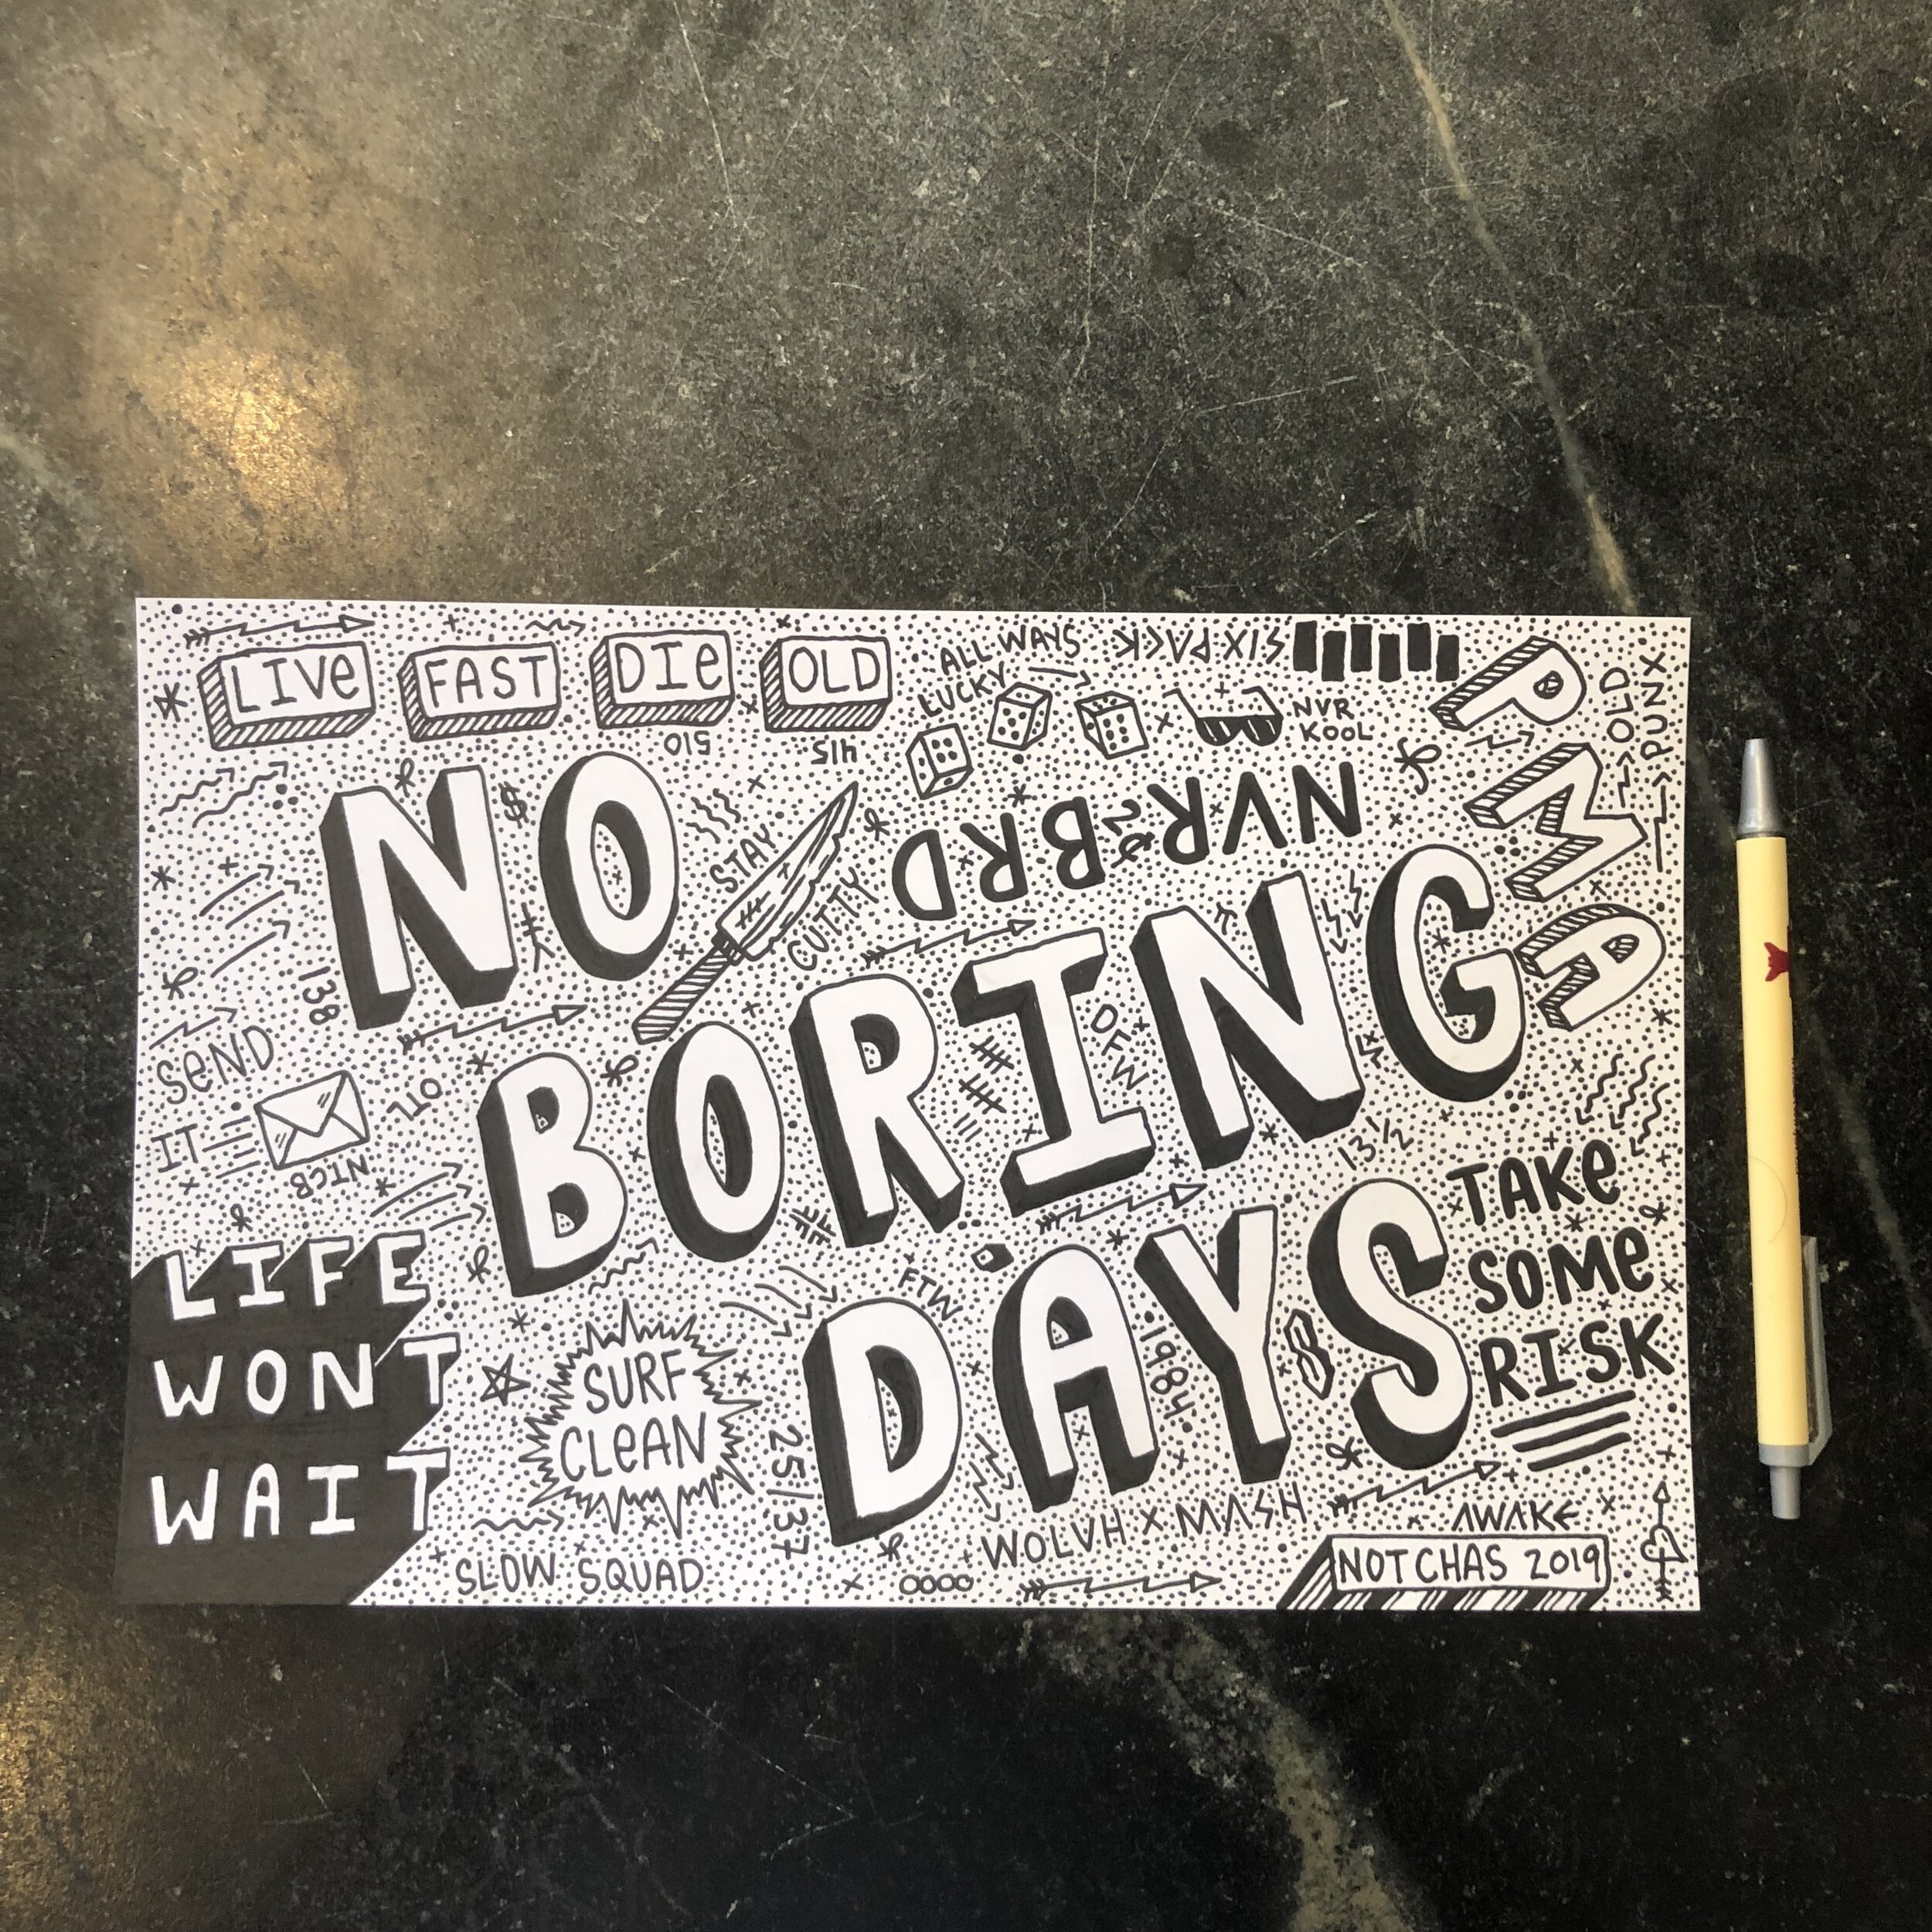 LIVe FAST DIe OLD
ALL WAYS
LUCKY
SIX PACK
NVR
KOOL
PMA
OLD
PUNX
510
415
NO
STAY
CUTTY
NVR BRD
138
SeND
IT
OTL
NTCB
BORING
DFW
13 1/2
TAKe
SOMe
RISK
LIFE
WONT
WAIT
DAYS
FTW
1984
SURF
CLeAN
25/37
SLOW SQUAD
WOLVH X MASH
AWAKE
NOT CHAS 2019